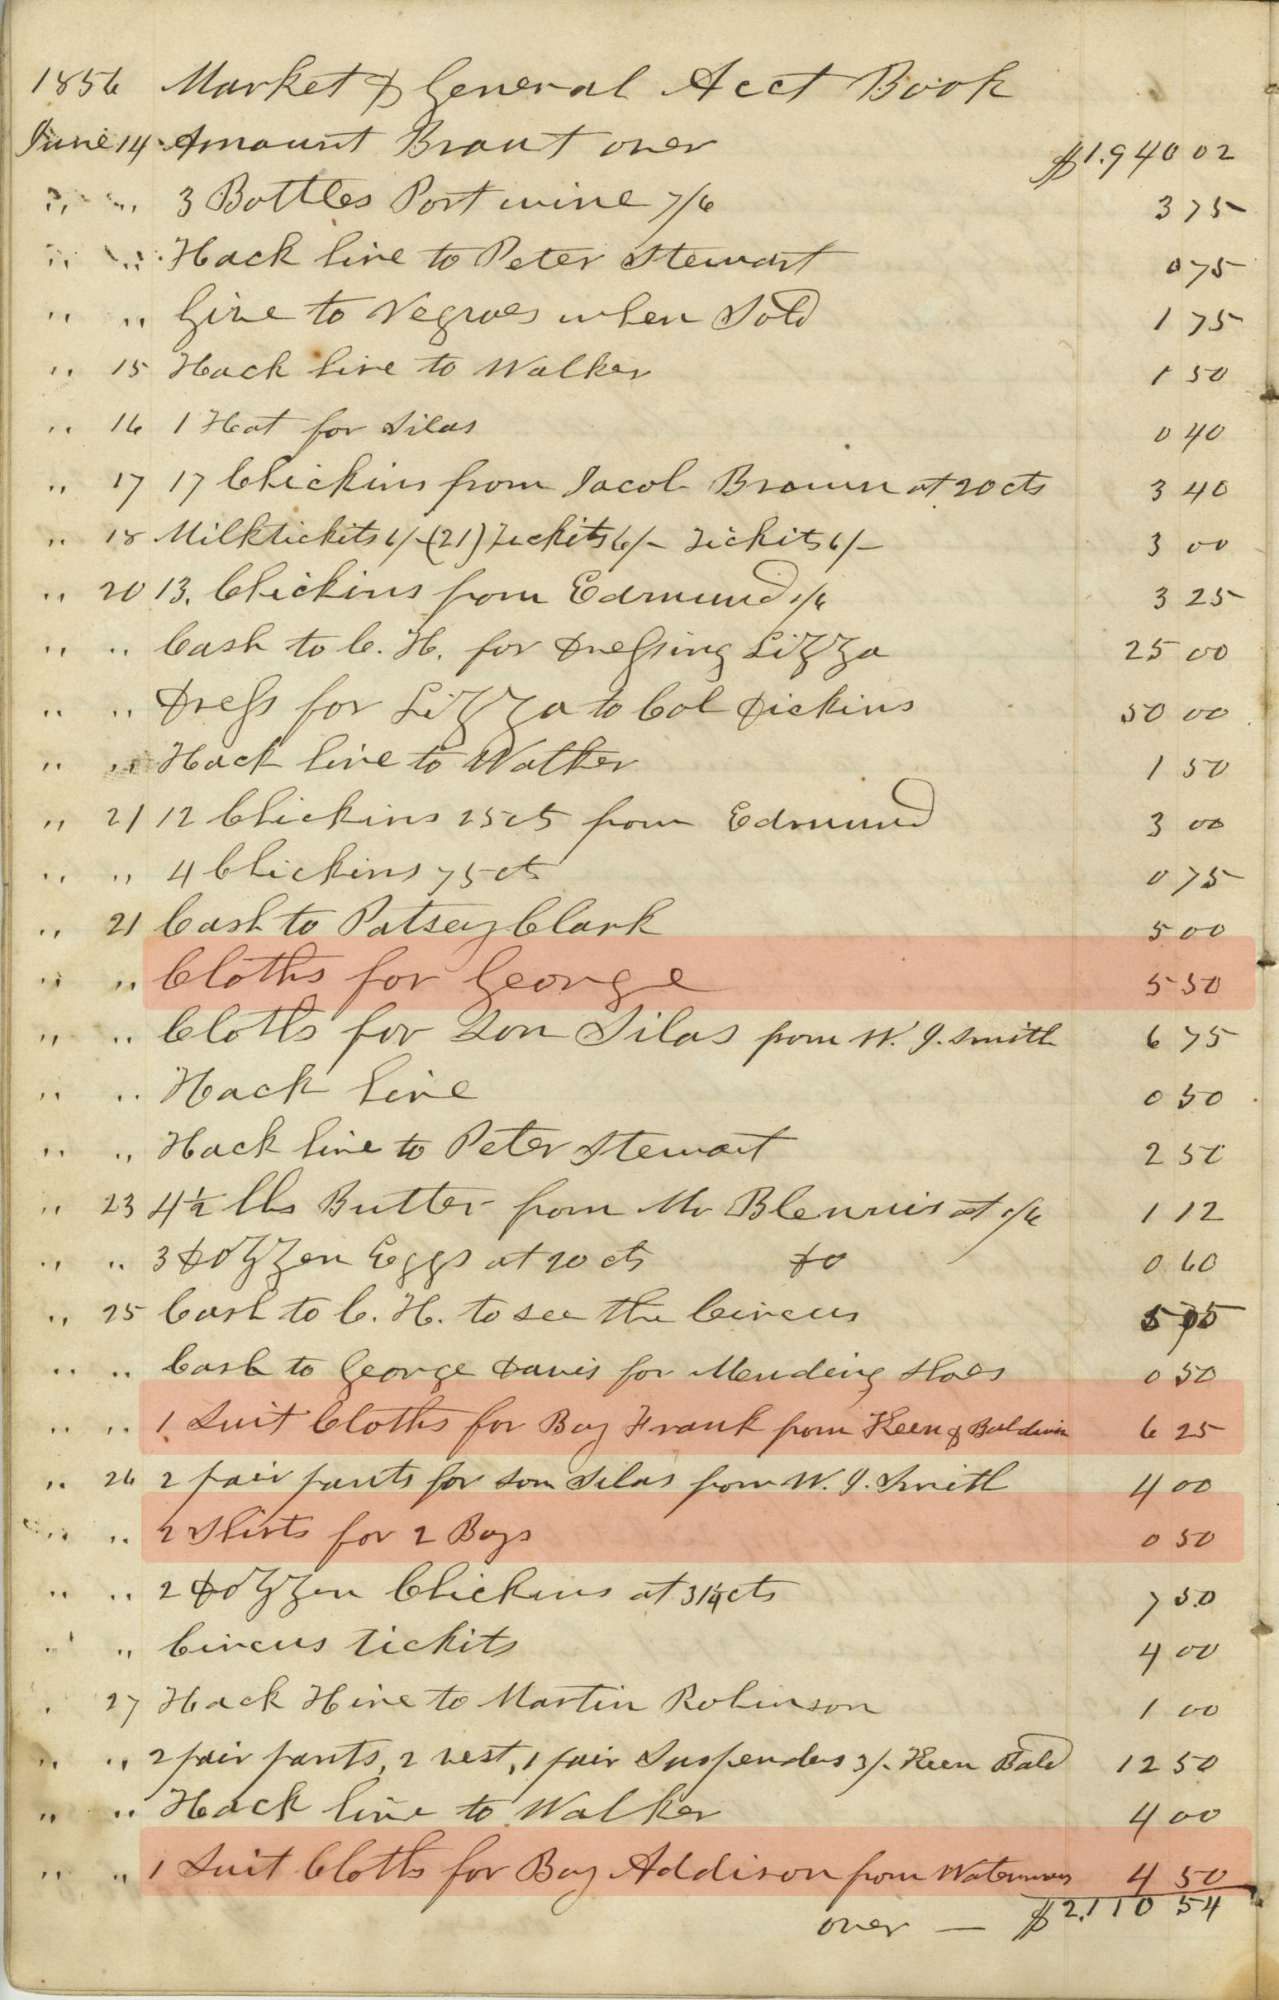 1856 Market & General Acct Book
June 14 Amount Braut over $1.940 02
" " 3 Bottles Port wine 7/6 3 75
" " Hack hire to Peter Stewart 0 75
" " Give to Negroes when Sold 1 75
" 15 Hack hire to Walker 1 50
" 16 1 Hat for Silas 0 40
" 17 17 Chickins from Jacob Brown at 20 cts 3 40
" 18 Milktickits 6/- (21) Tickits 6/- Tickits 6/- 3 00
" 20 13. Chickins from Edmund 1/6 3 25
" " Cash to C. H. for Dressing Lizza 25 00
" " Dress for Lizza to Col Dickins 50 00
" " Hack hire to Walker 1 50
" 21 12 Chickins 25 cts from Edmund 3 00
" " 4 Chickins 75 cts 0 75
" 21 Cash to Patsey Clark 5 00
" " Cloths for George 5 50
" " Cloths for Son Silas from W. J. Smith 6 75
" " Hack hire 0 50
" " Hack hire to Peter Stewart 2 50
" 23 4½ lbs Butter from Mr Blennis at 1/6 1 12
" " 3 Dozzen Eggs at 20 cts Do 0 60
" 25 Cash to C. H. to see the Circus
" " Cash to George Davis for Mending Shoes 0 50
" " 1 Suit Cloths for Boy Frank from Keen & Baldwin 6 25
" 26 2 pair pants for Son Silas from W. J. Smith 4 00
" " 2 Shirts for 2 Boys 0 50
" " 2 Dozzen Chickins at 31¼ cts 7 50
" " Circus tickits 4 00
" 27 Hack Hire to Martin Robinson 1 00
" " 2 pair pants, 2 vest, 1 pair Suspenders 3/- Keen Bald 12 50
" " Hack hire to Walker 4 00
" " 1 Suit Cloths for Boy Addison from 4 50
over — $2.110 54